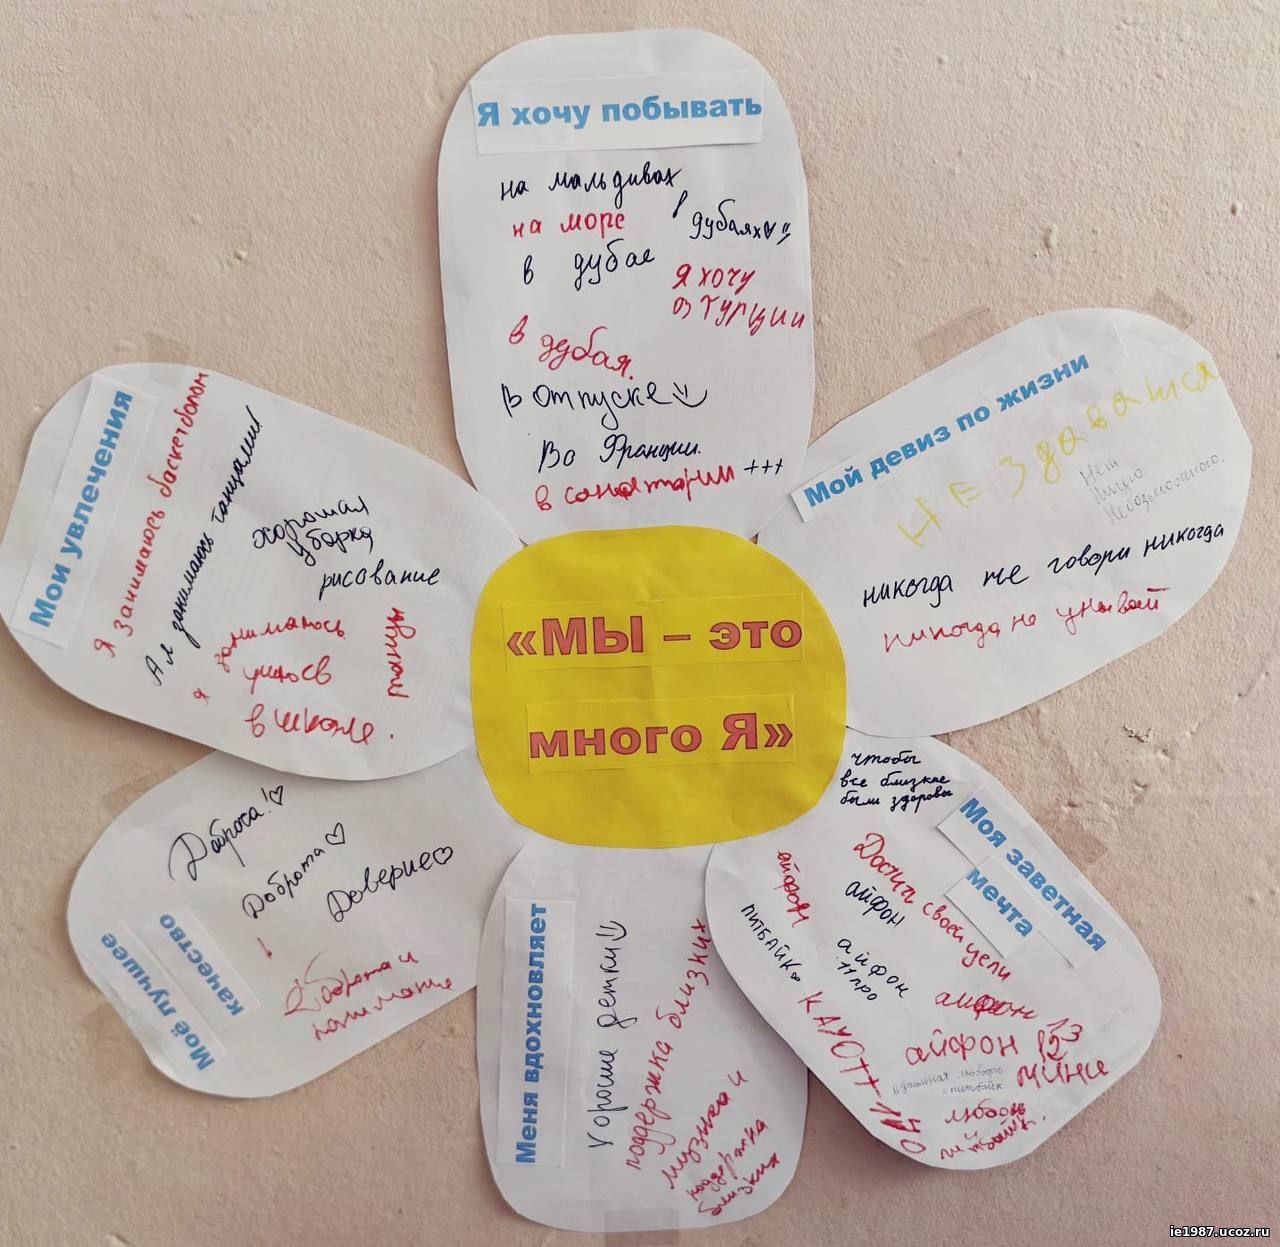 Я хочу побывать
на мальдивах
на море
в дубаях
в дубае
я хочу
в Турции
в дубая.
В отпуске
Во Франции.
в санатории +++
Мой девиз по жизни
НЕ здаваться
Нет
ничего
Невозможного.
никогда не говори никогда
никогда не унывай
Мои увлечения
Я занимаюсь баскетболом
А я занимаюсь танцами
хорошая
уборка
рисование
я занимаюсь
учюсв
в школе.
танцую
«МЫ – это
много Я»
чтобы
все близкие
были здоровы
Моя заветная
мечта
Достичь своей цели
айфон
айфон
питбайк
айфон
11 про
айфон 13
айфон 12
мини
КАЮОТТ-140
взаимная любовь
и питбайк
любовь
питбайк.
Меня вдохновляет
Хорошие детки
поддержка близких
музыка и
поддержка
близких
Моё лучшее
качество
Доброта!
Доброта
Доверие
Доброта и
понимание
ie1987.ucoz.ru